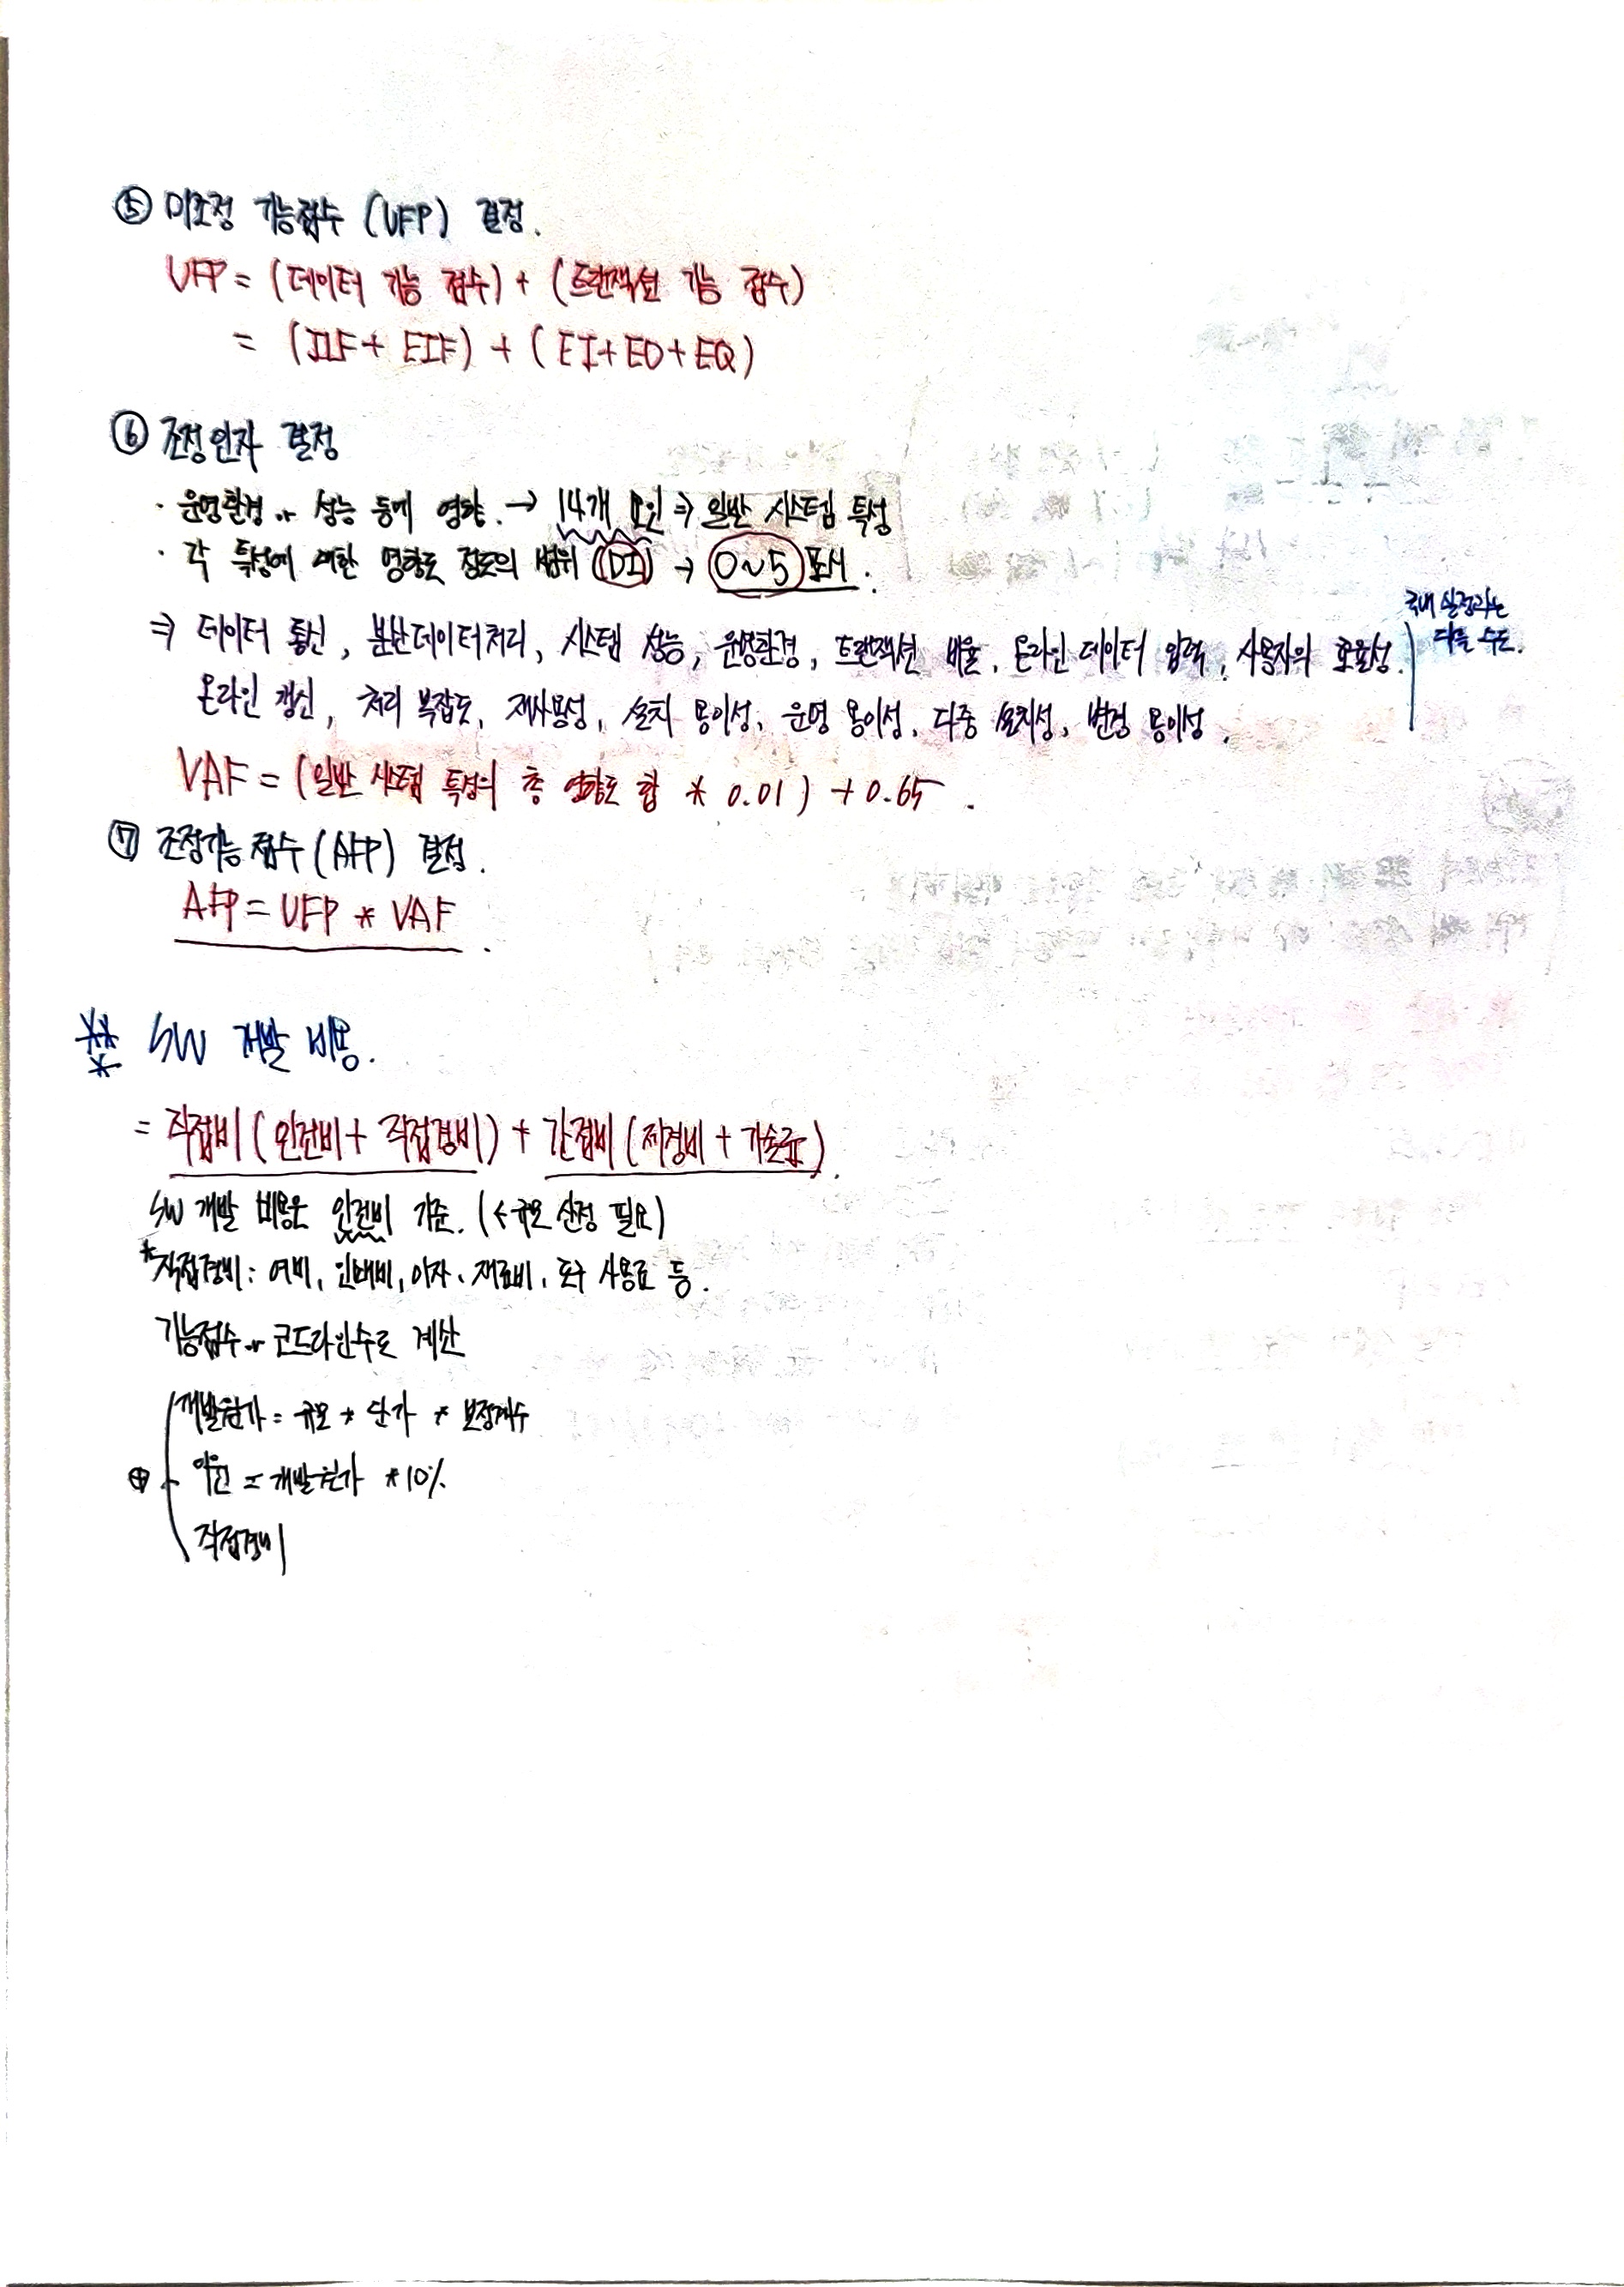 ⑤ 미조정 기능점수 (UFP) 결정.
UFP = (데이터 기능 점수) + (트랜잭션 기능 점수)
= (ILF + EIF) + (EI+EO+EQ)
⑥ 조정인자 결정
· 운영환경 or 성능 등에 영향. → 14개 요인 ⇒ 일반 시스템 특성
· 각 특성에 대한 영향도 정도의 범위 (DI) → 0~5 표시.
국내 실정과는
다를 수도.
⇒ 데이터 통신, 분산데이터처리, 시스템 성능, 운영환경, 트랜잭션 비율, 온라인 데이터 입력, 사용자의 효율성.
온라인 갱신, 처리 복잡도, 재사용성, 설치 용이성, 운영 용이성, 다중 설치성, 변경 용이성.
VAF = (일반 시스템 특성의 총 영향도 합 * 0.01) + 0.65.
⑦ 조정기능점수 (AFP) 결정.
AFP = UFP * VAF.
*** SW 개발 비용.
= 직접비 (인건비 + 직접경비) + 간접비 (제경비 + 기술료).
SW 개발 비용은 인건비 기준. (← 규모 산정 필요)
*직접경비: 여비, 임대비, 이자, 재료비, 도구 사용료 등.
기능점수 or 코드라인수로 계산
개발원가 = 규모 * 단가 * 보정계수
⊕ 이윤 = 개발원가 * 10%
직접경비